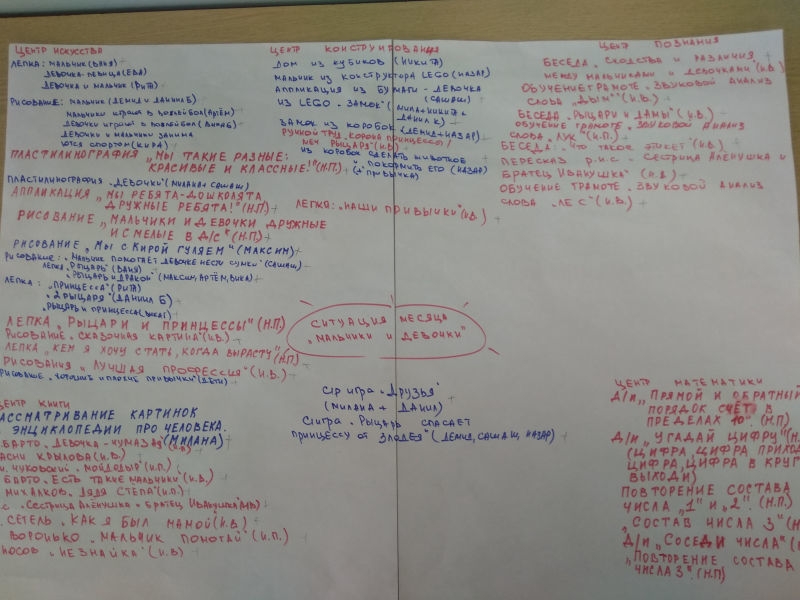 ЦЕНТР ИСКУССТВА
ЛЕПКА: МАЛЬЧИК (ВАНЯ)
ДЕВОЧКА-ПЕВИЦА (ЕВА)
ДЕВОЧКА И МАЛЬЧИК (РИТА)
РИСОВАНИЕ: МАЛЬЧИК (ДЕМИД И ДАНИИЛ Б)
МАЛЬЧИКИ ИГРАЮТ В ВОЛЕЙБОЛ (АРТЁМ)
ДЕВОЧКИ ИГРАЮТ В ВОЛЕЙБОЛ
ДЕВОЧКИ И МАЛЬЧИКИ ЗАНИМА
ЮТСЯ СПОРТОМ (КИРА)
ПЛАСТИЛИНОГРАФИЯ „МЫ ТАКИЕ РАЗНЫЕ:
КРАСИВЫЕ И КЛАССНЫЕ!" (Н.П)
ПЛАСТИЛИНОГРАФИЯ „ДЕВОЧКИ" (МИЛАНА + САШАШ)
АППЛИКАЦИЯ „МЫ РЕБЯТА-ДОШКОЛЯТА,
ДРУЖНЫЕ РЕБЯТА!" (Н.П)
РИСОВАНИЕ „МАЛЬЧИКИ И ДЕВОЧКИ ДРУЖНЫЕ
И СМЕЛЫЕ В Д/С" (Н.П.)
РИСОВАНИЕ „МЫ С КИРОЙ ГУЛЯЕМ" (МАКСИМ)
РИСОВАНИЕ: „МАЛЬЧИК ПОМОГАЕТ ДЕВОЧКЕ НЕСТИ СУМКИ" (САШАШ)
ЛЕПКА „РЫЦАРЬ" (ВАНЯ)
„РЫЦАРЬ И ДРАКОН" (МАКСИМ, АРТЁМ, ВИКА)
ЛЕПКА: „ПРИНЦЕССА" (РИТА)
„2 РЫЦАРЯ" (ДАНИИЛ Б)
„РЫЦАРЬ И ПРИНЦЕССА"
ЛЕПКА „РЫЦАРИ И ПРИНЦЕССЫ" (Н.П)
РИСОВАНИЕ „СКАЗОЧНАЯ КАРТИНА" (И.В.)
ЛЕПКА „КЕМ Я ХОЧУ СТАТЬ, КОГДА ВЫРАСТУ" (Н.П)
РИСОВАНИЯ „ЛУЧШАЯ ПРОФЕССИЯ" (И.В.)
РИСОВАНИЕ „ХОРОШИЕ И ПЛОХИЕ ПРИВЫЧКИ" (ДЕТИ)
ЦЕНТР КОНСТРУИРОВАНИЯ
ДОМ ИЗ КУБИКОВ (НИКИТА)
МАЛЬЧИК ИЗ КОНСТРУКТОРА LEGO (НАЗАР)
АППЛИКАЦИЯ ИЗ БУМАГИ - ДЕВОЧКА
(САШАШ)
ИЗ LEGO - ЗАМОК" (МИЛАНА + НИКИТА +
ДАНИЛ К)
ЗАМОК ИЗ КОРОБОК (ДЕМИД + НАЗАР)
РУЧНОЙ ТРУД „КОРОНА ПРИНЦЕССЫ/
МЕЧ РЫЦАРЯ" (И.В)
ИЗ КОРОБОК СДЕЛАТЬ ЖИВОТНОЕ
И ПОКОРМИТЬ ЕГО (НАЗАР)
(+ ПРИВЫЧКА)
ЛЕПКА: „НАШИ ПРИВЫЧКИ" (И.В.)
ЦЕНТР ПОЗНАНИЯ
БЕСЕДА „СХОДСТВА И РАЗЛИЧИЯ
МЕЖДУ МАЛЬЧИКАМИ И ДЕВОЧКАМИ" (И.В.)
ОБУЧЕНИЕ ГРАМОТЕ. ЗВУКОВОЙ АНАЛИЗ
СЛОВА „ДЫМ" (И.В.)
БЕСЕДА „РЫЦАРИ И ДАМЫ" (И.В.)
ОБУЧЕНИЕ ГРАМОТЕ. ЗВУКОВОЙ АНАЛИЗ
СЛОВА „ЛУК" (И.П)
БЕСЕДА: „ЧТО ТАКОЕ ЭТИКЕТ" (И.В.)
ПЕРЕСКАЗ Р.Н.С - СЕСТРИЦА АЛЁНУШКА И
БРАТЕЦ ИВАНУШКА" (И.В)
ОБУЧЕНИЕ ГРАМОТЕ. ЗВУКОВОЙ АНАЛИЗ
СЛОВА „ЛЕС" (И.В.)
СИТУАЦИЯ МЕСЯЦА
„МАЛЬЧИКИ И ДЕВОЧКИ"
С/Р ИГРА „ДРУЗЬЯ"
(МИЛАНА + ДАНИЛ)
С/Р ИГРА „РЫЦАРЬ СПАСАЕТ
ПРИНЦЕССУ ОТ ЗЛОДЕЯ" (ДЕМИД, САШАШ, НАЗАР)
ЦЕНТР КНИГИ
РАССМАТРИВАНИЕ КАРТИНОК
ЭНЦИКЛОПЕДИИ ПРО ЧЕЛОВЕКА.
(МИЛАНА)
БАРТО „ДЕВОЧКА-ЧУМАЗАЯ"
БАСНИ КРЫЛОВА (И.В.)
ЧУКОВСКИЙ „МОЙДОДЫР" (И.П.)
БАРТО „ЕСТЬ ТАКИЕ МАЛЬЧИКИ" (И.В.)
МИХАЛКОВ „ДЯДЯ СТЕПА" (И.П.)
С. „СЕСТРИЦА АЛЁНУШКА И БРАТЕЦ ИВАНУШКА"
СЕГЕЛЬ „КАК Я БЫЛ МАМОЙ" (И.В.)
ВОРОНЬКО „МАЛЬЧИК ПОМОГАЙ" (И.П.)
НОСОВ „НЕЗНАЙКА" (И.В)
ЦЕНТР МАТЕМАТИКИ
Д/И „ПРЯМОЙ И ОБРАТНЫЙ
ПОРЯДОК СЧЁТ В
ПРЕДЕЛАХ 10". (Н.П)
Д/И „УГАДАЙ ЦИФРУ"
(ЦИФРА, ЦИФРА ПРИХОД
ЦИФРА, ЦИФРА В КРУГ
ВЫХОДИ)
ПОВТОРЕНИЕ СОСТАВА
ЧИСЛА „1" И „2". (Н.П)
„СОСТАВ ЧИСЛА 3"
Д/И „СОСЕДИ ЧИСЛА"
„ПОВТОРЕНИЕ СОСТАВА
ЧИСЛА 3". (Н.П)